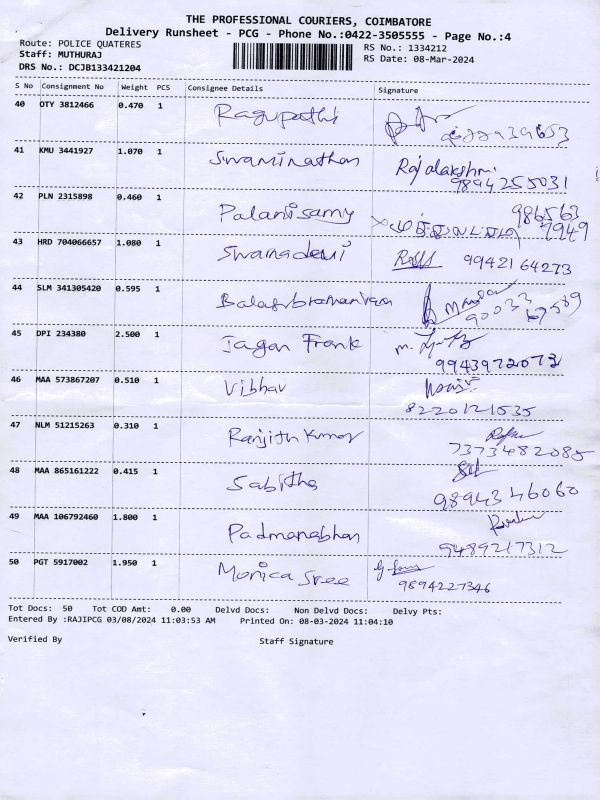 THE PROFESSIONAL COURIERS, COIMBATORE
Delivery Runsheet - PCG - Phone No.:0422-3505555 - Page No.:4
Route: POLICE QUATERES RS No.: 1334212
Staff: MUTHURAJ RS Date: 08-Mar-2024
DRS No.: DCJB133421204
S No Consignment No Weight PCS Consignee Details Signature
40 OTY 3812466 0.470 1 Ragupathi
41 KMU 3441927 1.070 1 Swaminathan Rajalakshmi
9894255031
42 PLN 2315898 0.460 1 Palanisamy 986563
7949
43 HRD 704066657 1.080 1 Swarnadevi 9942164273
44 SLM 341305420 0.595 1 Balasubramaniyam 90033
67589
45 DPI 234380 2.500 1 Jagan Frank
9943972073
46 MAA 573867207 0.510 1 Vibhav
8220121535
47 NLM 51215263 0.310 1 Ranjith Kumar
7373482085
48 MAA 865161222 0.415 1 Sabitha
9894346060
49 MAA 106792460 1.800 1 Padmanabhan
9489217312
50 PGT 5917002 1.950 1 Monica Sree
9894227346
Tot Docs: 50 Tot COD Amt: 0.00 Delvd Docs: Non Delvd Docs: Delvy Pts:
Entered By :RAJIPCG 03/08/2024 11:03:53 AM Printed On: 08-03-2024 11:04:10
Verified By Staff Signature